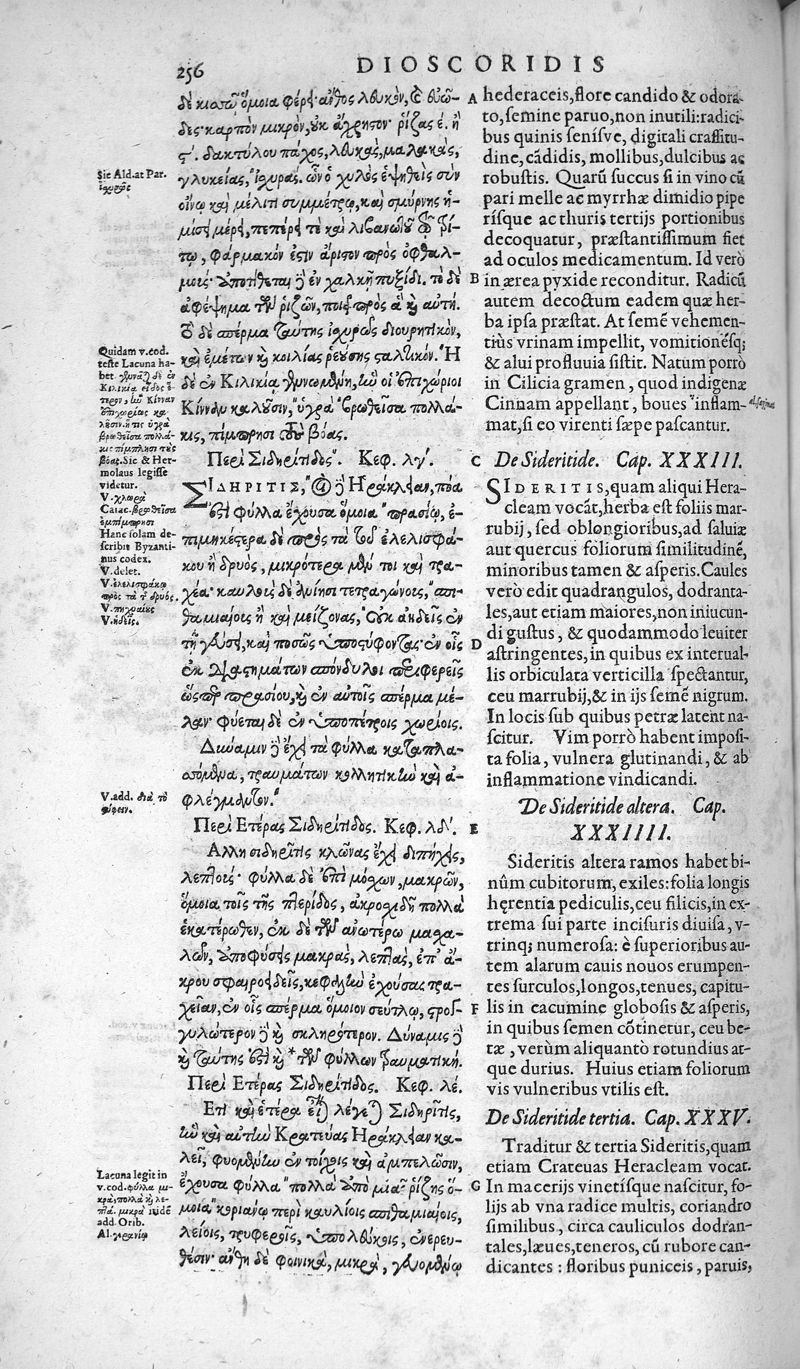 256
DIOSCORIDIS
δὲ κιασῷ ὅμοια φέρει· ἄνθος λευκὸν, καὶ εὐῶ-
δες· καρπὸν μικρὸν, οὐκ ἄχρηστον· ῥίζας ε. ἢ
ϛ'. δακτύλου πάχος, λευκὰς, μαλακὰς,
γλυκείας, ἰσχυράς. ὧν ὁ χυλὸς ἑψηθεὶς σὺν
οἴνῳ καὶ μέλιτι συμμέτρῳ, καὶ σμύρνης ἡ-
μίσει μέρει, πεπέρει τε καὶ λιβανωτοῦ τῷ τρί-
τῳ, φάρμακόν ἐστιν ἄριστον πρὸς ὀφθαλ-
μούς· ἀποτίθεται δὲ ἐν χαλκῇ πυξίδι. τὸ δὲ
ἀφέψημα τῶν ῥιζῶν, ποιεῖ πρὸς ἃ καὶ αὐτή.
τὸ δὲ σπέρμα ταύτης ἰσχυρῶς διουρητικὸν,
καὶ ἐμέτων καὶ κοιλίας ῥεύσης σταλτικόν. Ἡ
δὲ ἐν Κιλικίᾳ γινομένη, ἣν οἱ ἐπιχώριοι
Κίνναν καλοῦσιν, ὑγρὰ βρωθεῖσα πολλά-
κις, πίμπρησι τοὺς βόας.
Περὶ Σιδηρίτιδος. Κεφ. λγ'.
ΣΙΔΗΡΙΤΙΣ, οἱ δὲ Ἡράκλειαν, πόα
ἐστὶ φύλλα ἔχουσα ὅμοια πρασίῳ, ἐ-
πιμηκέστερα δὲ πρὸς τὰ τοῦ ἐλελισφά-
κου ἢ δρυὸς, μικρότερα μέν τοι καὶ τρα-
χέα· καυλοὺς δὲ ἀνίησι τετραγώνους, σπι-
θαμιαίους ἢ καὶ μείζονας, οὐκ ἀηδεῖς ἐν
τῇ γεύσει, καὶ ποσῶς ὑποστύφοντας· ἐν οἷς
ἐκ διαστημάτων σπόνδυλοι περιφερεῖς
ὥσπερ πρασίου, καὶ ἐν αὐτοῖς σπέρμα μέ-
λαν· φύεται δὲ ἐν ὑποπέτροις χωρίοις.
Δύναμιν δὲ ἔχει τὰ φύλλα καταπλα-
σσόμενα, τραυμάτων κολλητικὴν καὶ ἀ-
φλέγμαντον.
Περὶ Ετέρας Σιδηρίτιδος. Κεφ. λδ'.
Αλλη σιδηρῖτις κλῶνας ἔχει διπήχεις,
λεπτούς· φύλλα δὲ ἐπὶ μόσχων, μακρῶν,
ὅμοια τοῖς τῆς πτερίδος, ἀκροσχιδῆ πολλὰ
ἑκατέρωθεν, ἐκ δὲ τῶν ἀνωτέρω μασχα-
λῶν, ἀποφύσεις μακρὰς, λεπτὰς, ἐπ' ἄ-
κρου σφαιροειδεῖς, κεφαλὴν ἐχούσας τρα-
χεῖαν, ἐν οἷς σπέρμα ὅμοιον σεύτλῳ, στρογ-
γυλώτερον δὲ καὶ σκληρότερον. Δύναμις δὲ
καὶ ταύτης ἐστὶ καὶ *τῶν φύλλων τραυματική.
Περὶ Ετέρας Σιδηρίτιδος. Κεφ. λέ.
Ετι καὶ ἑτέρα εἶναι λέγεται Σιδηρῖτις,
ἣν καὶ αὐτὴν Κρατεύας Ηράκλειαν κα-
λεῖ, φυομένην ἐν τοίχοις καὶ ἀμπελῶσιν,
ἔχουσα φύλλα πολλὰ ἀπὸ μιᾶς ῥίζης ὅ-
μοια κοριάνῳ περὶ καυλίοις σπιθαμιαίοις,
λείοις, τρυφεροῖς, ὑπολεύκοις, ἐνερευ-
θέσιν· ἄνθη δὲ φοινικᾶ, μικρὰ, γευομένῳ
Sic Ald. at Par.
ἰσχυρός
Quidam v. cod.
teste Lacuna ha-
bet
Sic & Her-
molaus legisse
videtur.
V. χλωρὰ
Caiac. βρωθεῖσα
ἐμπίμπρησι
Hanc solam de-
scribit Byzanti-
nus codex.
V. delet.
V. ἐλελισφάκῳ
πρὸς τὰ τ̃ δρυὸς.
V. ἡδεῖς.
V. add. διὰ τὸ
Lacuna legit in
v. cod. φύλλα μι-
κρὰ, πολλὰ καὶ λε-
πτά. μικρὰ itidē
add. Orib.
A hederaceis, flore candido & odora-
to, semine paruo, non inutili: radici-
bus quinis senísve, digitali crassitu-
dine, cādidis, mollibus, dulcibus ac
robustis. Quarū succus si in vino cū
pari melle ac myrrhæ dimidio pipe
rísque ac thuris tertijs portionibus
decoquatur, præstantissimum fiet
ad oculos medicamentum. Id verò
B in ærea pyxide reconditur. Radicū
autem decoctum eadem quæ her-
ba ipsa præstat. At semē vehemen-
tiùs vrinam impellit, vomitionésq;
& alui profluuia sistit. Natum porrò
in Cilicia gramen, quod indigenæ
Cinnam appellant, boues inflam-
mat, si eo virenti sæpe pascantur.
C De Sideritide. Cap. XXXIII.
SIDERITIS, quam aliqui Hera-
cleam vocāt, herba est foliis mar-
rubij, sed oblongioribus, ad saluiæ
aut quercus foliorum similitudinē,
minoribus tamen & asperis. Caules
verò edit quadrangulos, dodranta-
les, aut etiam maiores, non iniucun-
di gustus, & quodammodo leuiter
D astringentes, in quibus ex interual-
lis orbiculata verticilla spectantur,
ceu marrubij, & in ijs semē nigrum.
In locis sub quibus petræ latent na-
scitur. Vim porrò habent imposi-
ta folia, vulnera glutinandi, & ab
inflammatione vindicandi.
De Sideritide altera. Cap.
E XXXIIII.
Sideritis altera ramos habet bi-
nûm cubitorum, exiles: folia longis
hęrentia pediculis, ceu filicis, in ex-
trema sui parte incisuris diuisa, v-
trinq; numerosa: è superioribus au-
tem alarum cauis nouos erumpen-
tes surculos, longos, tenues, capitu-
F lis in cacumine globosis & asperis,
in quibus semen cōtinetur, ceu be-
tæ, verùm aliquantò rotundius at-
que durius. Huius etiam foliorum
vis vulneribus vtilis est.
De Sideritide tertia. Cap. XXXV.
Traditur & tertia Sideritis, quam
etiam Crateuas Heracleam vocat.
G In macerijs vinetísque nascitur, fo-
lijs ab vna radice multis, coriandro
similibus, circa cauliculos dodran-
tales, læues, teneros, cū rubore can-
dicantes: floribus puniceis, paruis,